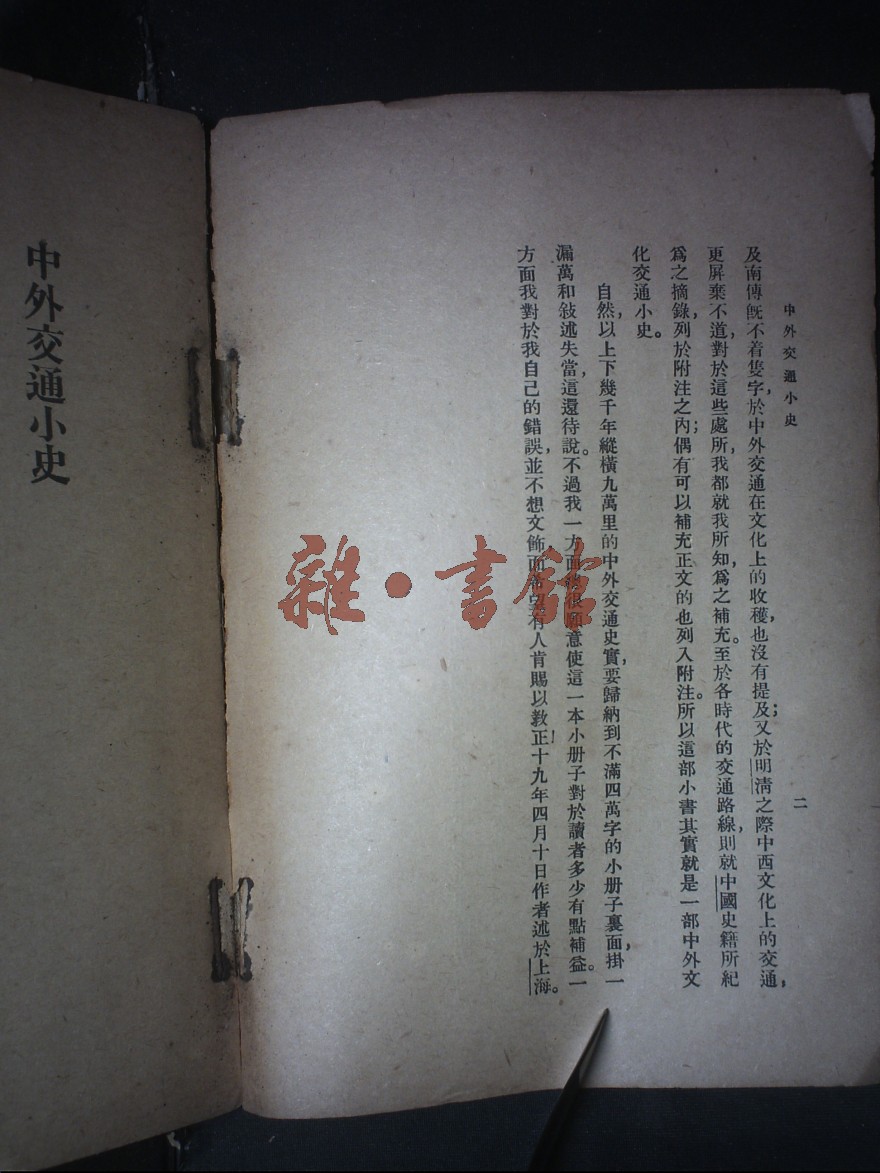 中外交通小史
二
及南傳旣不着隻字，於中外交通在文化上的收穫，也沒有提及；又於明淸之際中西文化上的交通，
更屏棄不道，對於這些處所，我都就我所知，爲之補充。至於各時代的交通路線，則就中國史籍所紀
爲之摘錄，列於附注之內；偶有可以補充正文的也列入附注。所以這部小書其實就是一部中外文
化交通小史。
自然，以上下幾千年縱橫九萬里的中外交通史實，要歸納到不滿四萬字的小册子裏面，掛一
漏萬和敍述失當，這還待說。不過我一方面總很願意使這一本小册子對於讀者多少有點補益。一
方面我對於我自己的錯誤，並不想文飾，而希望有人肯賜以敎正！十九年四月十日作者述於上海。
中外交通小史
雜·書館